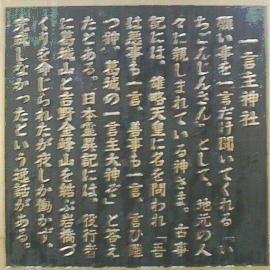 一言主神社
願い事を一言だけ聞いてくれる「い
ちごんじんさん」として、地元の人
々に親しまれている神さま。古事
記には、雄略天皇に名を問われ「吾
は悪事も一言、善事も一言、言い離
つ神、葛城の一言主大神ぞ」と答え
たとある。日本霊異記には、役行者
に葛城山と吉野金峰山を結ぶ岩橋づ
くりを命じられたが夜しか働かず、
完成しなかったという逸話がある。